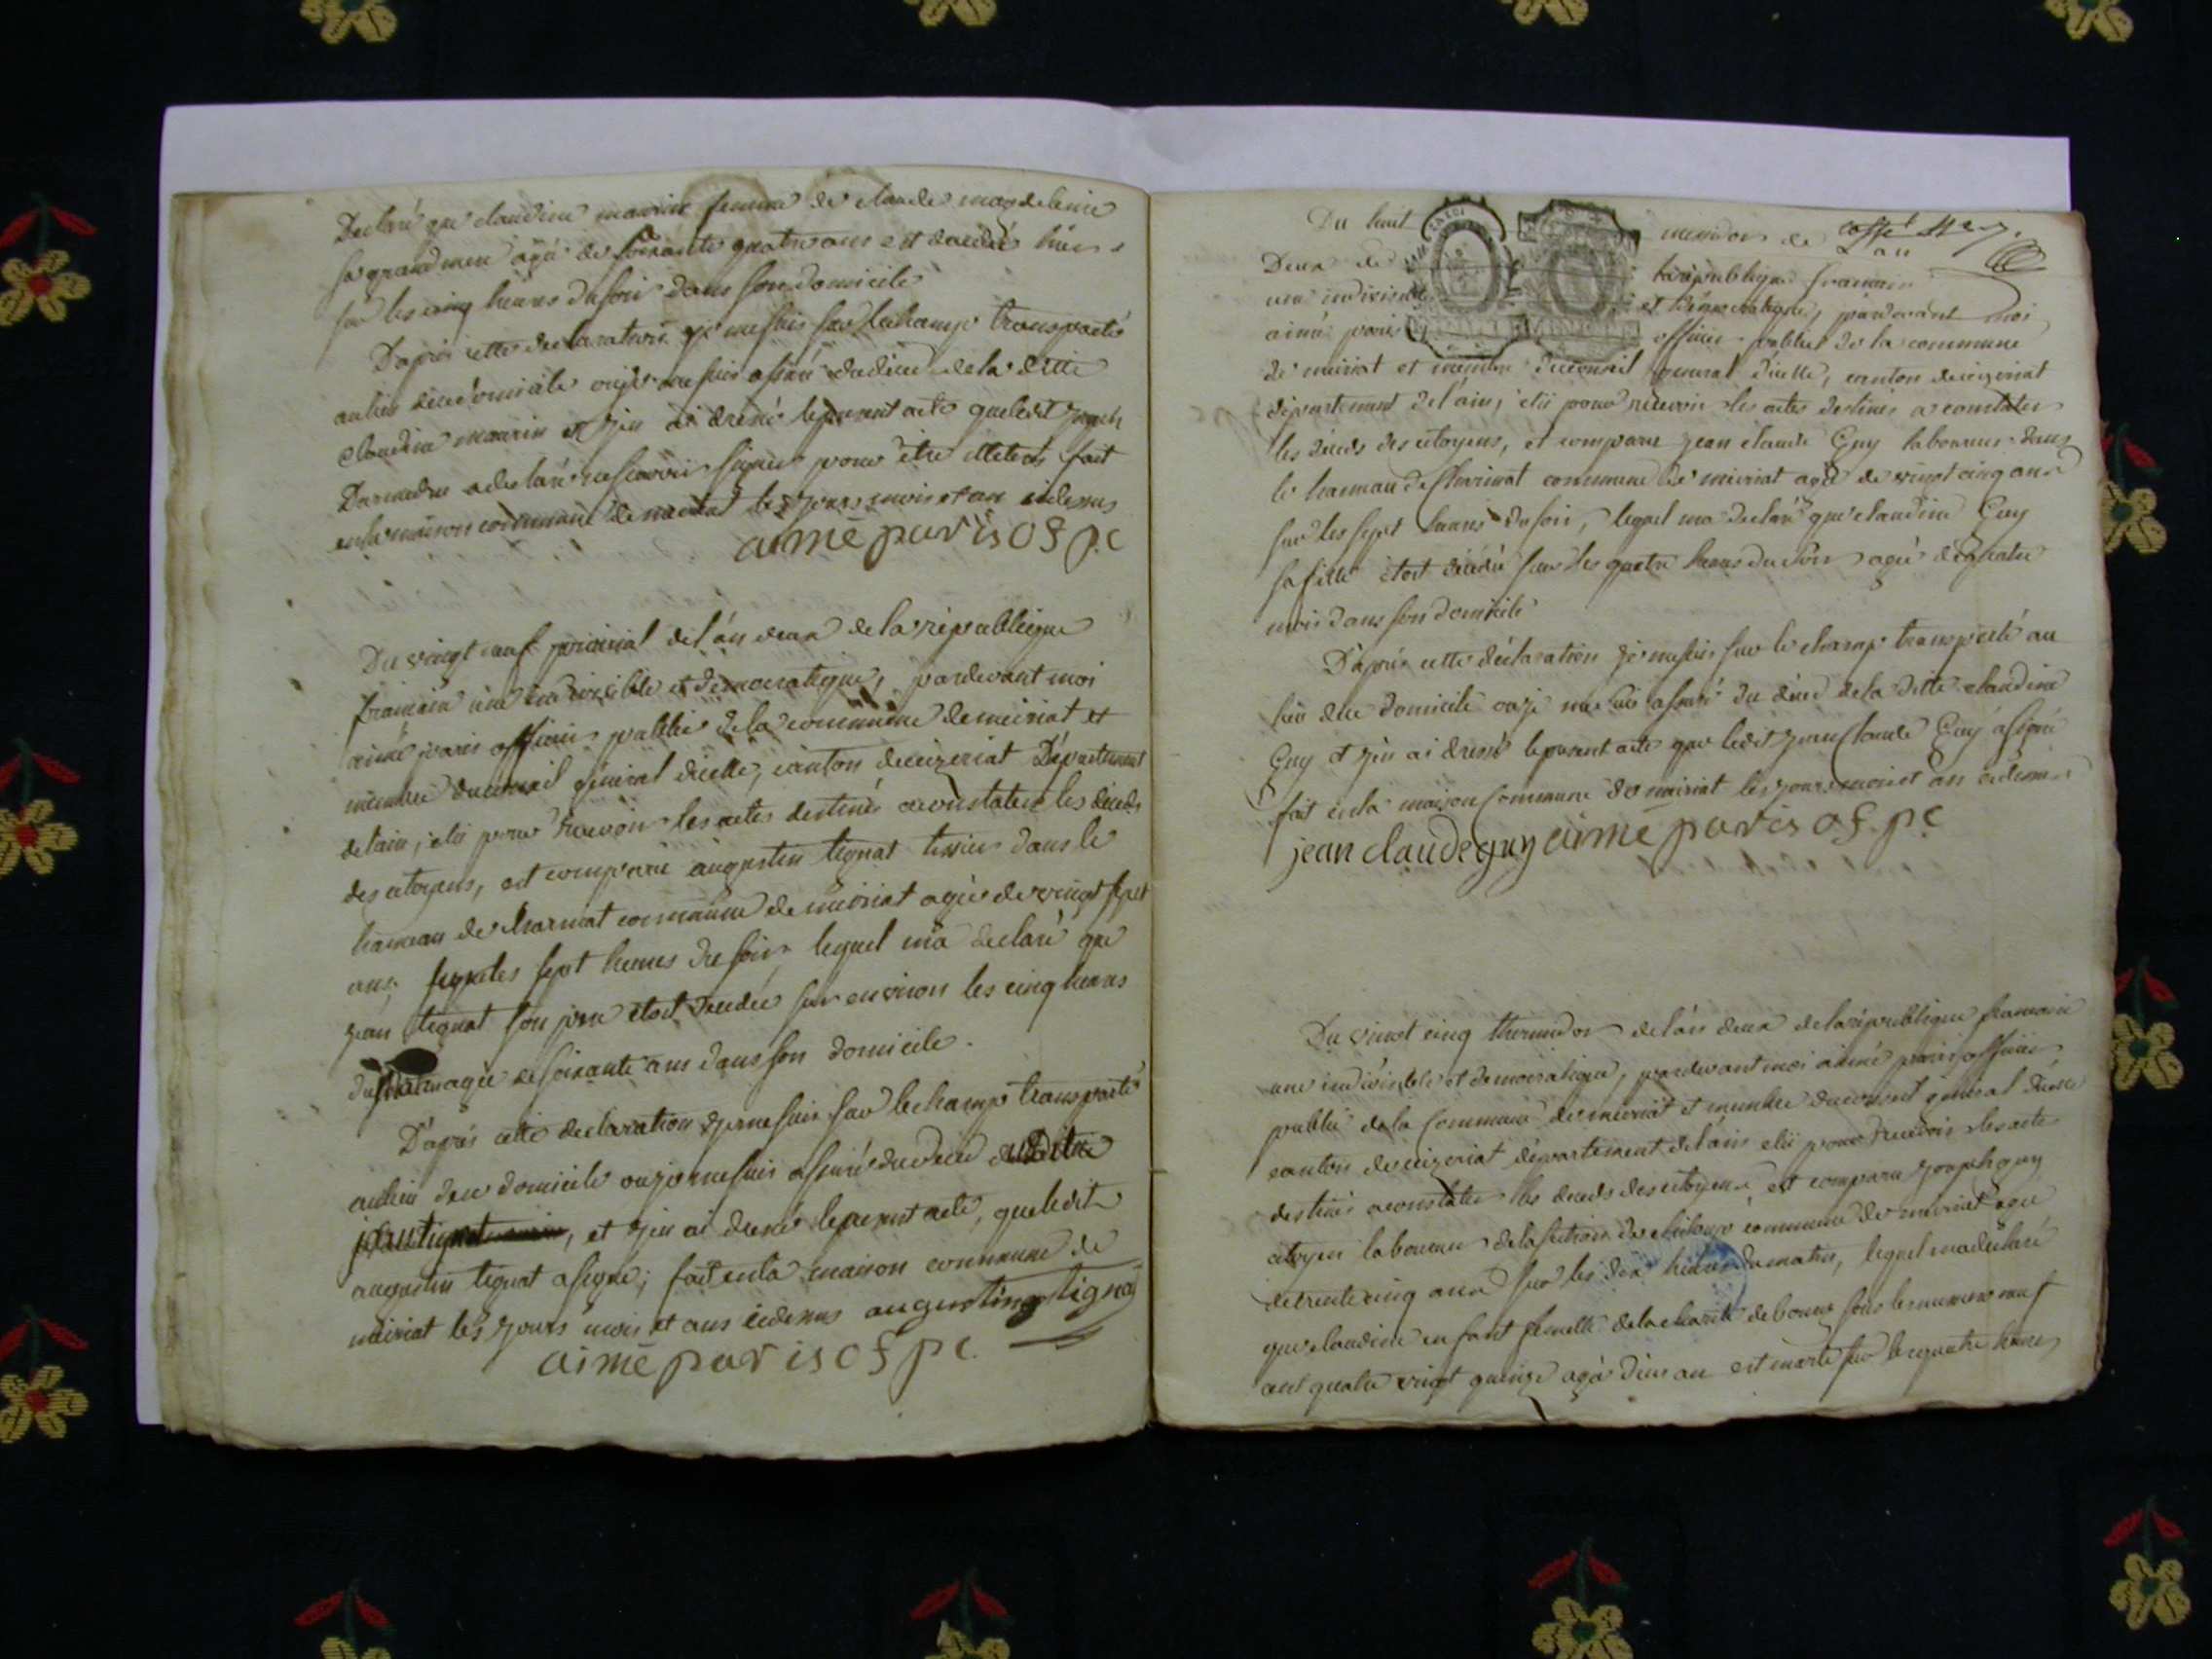 Declaré que claudine maurin femme de claude magdeleine
sa grand mere agée de soixante quatre ans est decedée hier
sur les cinq heures du soir dans son domicile
D'après cette declaration je me suis sur le champ transporté
au lieu du domicile où je me suis assuré du deces de la ditte
claudine maurin et j'en ai dressé le present acte que ledit joseph
a declaré ne scavoir signer pour être illeteré fait
en la maison commune de meiriat les jours mois et an cidessus
aimé paris of p.c
Du vingt neuf prairial de l'an deux de la république
francaise une indivisible et democratique, pardevant moi
aimé paris officier public de la commune de meiriat et
membre du conseil général d'icelle, canton de ceizeriat Département
de l'ain, élu pour recevoir les actes destinés a constater les décès
des citoyens, est comparu augustin tignat tissier dans le
hameau de charinat commune de meiriat agé de vingt sept
ans, sur les sept heures du soir lequel m'a declaré que
jean tignat son pere etoit decedé sur environ les cinq heures
du matin agé de soixante ans dans son domicile.
D'après cette declaration je me suis sur le champ transporté
au lieu du domicile où je me suis assuré du deces dudit
jean tignat, et j'en ai dressé le present acte, que ledit
augustin tignat a signé; fait en la maison commune de
meiriat les jours mois et ans cidessus augustin tigna
aimé paris of p c.
Du huit messidor de l'an
Deux de la république francaise
une indivisible et démocratique, pardevant moi
aimé paris officier public de la commune
de meiriat et membre du conseil general d'icelle, canton de ceizeriat
département de l'ain, élu pour recevoir les actes destinés a constater
les décès des citoyens, est comparu jean claude Guy laboureur dans
le hameau de Charinat commune de meiriat agé de vingt cinq ans
sur les sept heures du soir, lequel m'a declaré que claudine Guy
sa fille etoit décédé sur les quatre heures du soir agée de quatre
mois dans son domicile
D'après cette déclaration je me suis sur le champ transporté au
lieu du domicile où je me suis assuré du décès de la ditte claudine
Guy et j'en ai dressé le present acte que ledit jean Claude Guy a signé
fait en la maison Commune de meiriat les jours mois et an cidessus
jean claude guy aimé paris of. p.c
Du vingt cinq thermidor de l'an deux de la république francaise
une indivisible et democratique, pardevant moi aimé paris officier
public de la Commune de meiriat et membre du conseil general d'icelle
canton de ceizeriat département de l'ain elu pour recevoir les actes
destinés a constater les deces des citoyens, est comparu joseph guy
citoyen laboureur de la section de commune de meiriat agé
de trente cinq ans sur les dix heures du matin, lequel m'a declaré
que claudine enfant femelle de la charité de bourg sous le numero neuf
cent quatre vingt quinze agée d'un an est morte sur les quatre heures